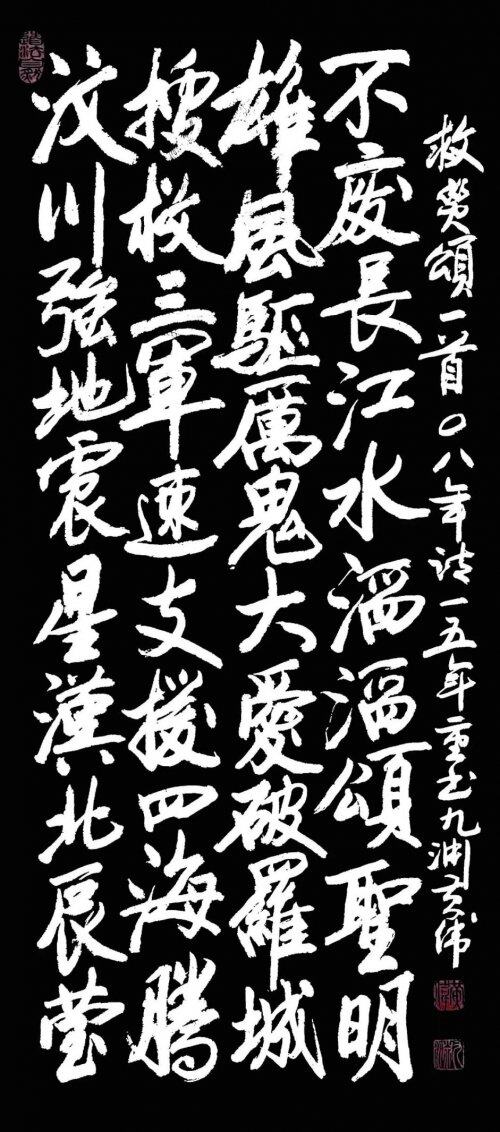 汶川強地震星漢北辰莹
搜救三軍速支援四海騰
雄風驅厲鬼大愛破羅城
不廢長江水滔滔頌聖明
救頌一首〇八年詩一五年重书九渊黄偉